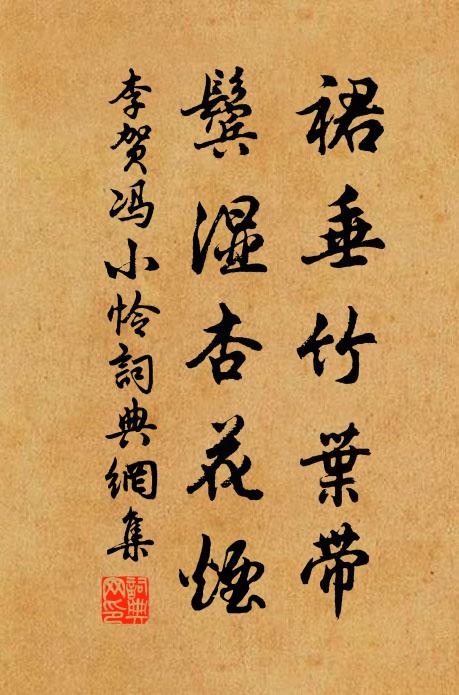 裙垂竹葉帶
鬢濕杏花煙
李贺冯小怜詞典網集
詞典网印